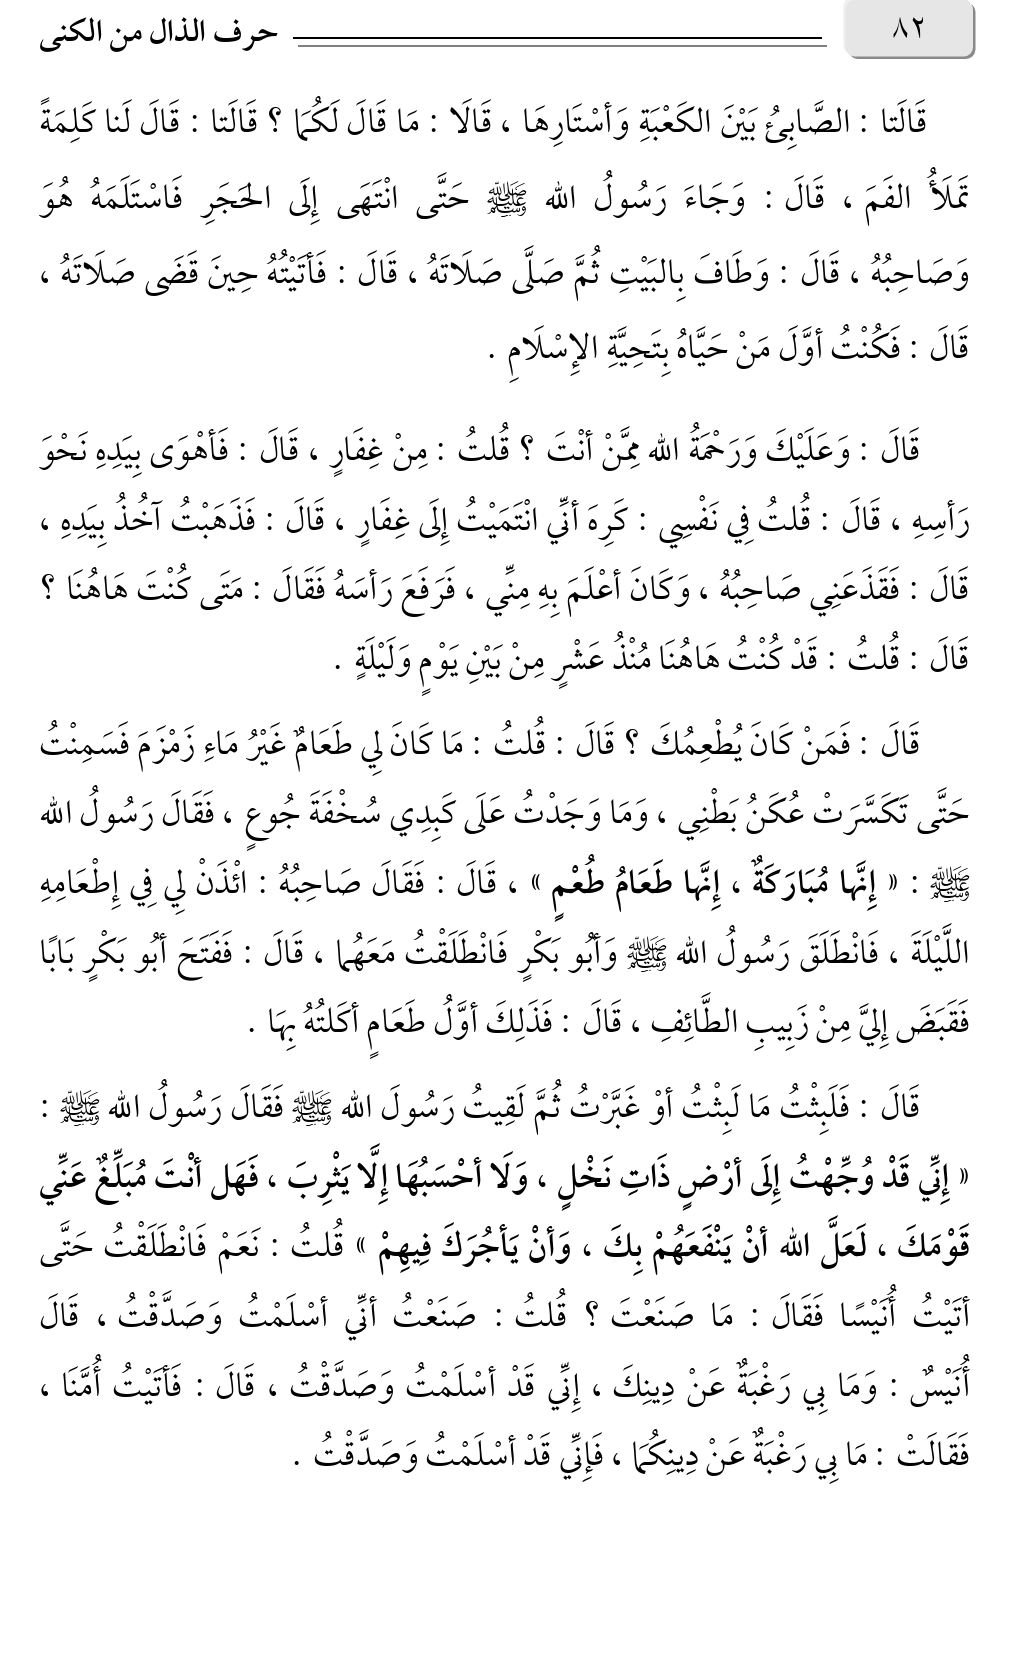 ٨٢ حرف الذال من الكنى
قَالَتا : الصَّابِئُ بَيْنَ الكَعْبَةِ وَأسْتَارِهَا ، قَالَا : مَا قَالَ لَكُمَا ؟ قَالَتا : قَالَ لَنا كَلِمَةً
تَمْلَأُ الفَمَ ، قَالَ : وَجَاءَ رَسُولُ الله ﷺ حَتَّى انْتَهَى إِلَى الحَجَرِ فَاسْتَلَمَهُ هُوَ
وَصَاحِبُهُ ، قَالَ : وَطَافَ بِالبَيْتِ ثُمَّ صَلَّى صَلَاتَهُ ، قَالَ : فَأتَيْتُهُ حِينَ قَضَى صَلَاتَهُ ،
قَالَ : فَكُنْتُ أوَّلَ مَنْ حَيَّاهُ بِتَحِيَّةِ الإِسْلَامِ .
قَالَ : وَعَلَيْكَ وَرَحْمَةُ الله مِمَّنْ أنْتَ ؟ قُلتُ : مِنْ غِفَارٍ ، قَالَ : فَأهْوَى بِيَدِهِ نَحْوَ
رَأسِهِ ، قَالَ : قُلتُ فِي نَفْسِي : كَرِهَ أنِّي انْتَمَيْتُ إِلَى غِفَارٍ ، قَالَ : فَذَهَبْتُ آخُذُ بِيَدِهِ ،
قَالَ : فَقَذَعَنِي صَاحِبُهُ ، وَكَانَ أعْلَمَ بِهِ مِنِّي ، فَرَفَعَ رَأسَهُ فَقَالَ : مَتَى كُنْتَ هَاهُنَا ؟
قَالَ : قُلتُ : قَدْ كُنْتُ هَاهُنَا مُنْذُ عَشْرٍ مِنْ بَيْنِ يَوْمٍ وَلَيْلَةٍ .
قَالَ : فَمَنْ كَانَ يُطْعِمُكَ ؟ قَالَ : قُلتُ : مَا كَانَ لِي طَعَامٌ غَيْرُ مَاءِ زَمْزَمَ فَسَمِنْتُ
حَتَّى تَكَسَّرَتْ عُكَنُ بَطْنِي ، وَمَا وَجَدْتُ عَلَى كَبِدِي سُخْفَةَ جُوعٍ ، فَقَالَ رَسُولُ الله
ﷺ : « إِنَّها مُبَارَكَةٌ ، إِنَّها طَعَامُ طُعْمٍ » ، قَالَ : فَقَالَ صَاحِبُهُ : ائْذَنْ لِي فِي إِطْعَامِهِ
اللَّيْلَةَ ، فَانْطَلَقَ رَسُولُ الله ﷺ وَأبُو بَكْرٍ فَانْطَلَقْتُ مَعَهُما ، قَالَ : فَفَتَحَ أبُو بَكْرٍ بَابًا
فَقَبَضَ إِليَّ مِنْ زَبِيبِ الطَّائِفِ ، قَالَ : فَذَلِكَ أوَّلُ طَعَامٍ أكَلتُهُ بِهَا .
قَالَ : فَلَبِثْتُ مَا لَبِثْتُ أوْ غَبَّرْتُ ثُمَّ لَقِيتُ رَسُولَ الله ﷺ فَقَالَ رَسُولُ الله ﷺ :
« إِنِّي قَدْ وُجِّهْتُ إِلَى أرْضٍ ذَاتِ نَخْلٍ ، وَلَا أحْسَبُهَا إِلَّا يَثْرِبَ ، فَهَل أنْتَ مُبَلِّغٌ عَنِّي
قَوْمَكَ ، لَعَلَّ الله أنْ يَنْفَعَهُمْ بِكَ ، وَأنْ يَأجُرَكَ فِيهِمْ » قُلتُ : نَعَمْ فَانْطَلَقْتُ حَتَّى
أتَيْتُ أُنَيْسًا فَقَالَ : مَا صَنَعْتَ ؟ قُلتُ : صَنَعْتُ أنِّي أسْلَمْتُ وَصَدَّقْتُ ، قَالَ
أُنَيْسٌ : وَمَا بِي رَغْبَةٌ عَنْ دِينِكَ ، إِنِّي قَدْ أسْلَمْتُ وَصَدَّقْتُ ، قَالَ : فَأتَيْتُ أُمَّنَا ،
فَقَالَتْ : مَا بِي رَغْبَةٌ عَنْ دِينِكُمَا ، فَإِنِّي قَدْ أسْلَمْتُ وَصَدَّقْتُ .